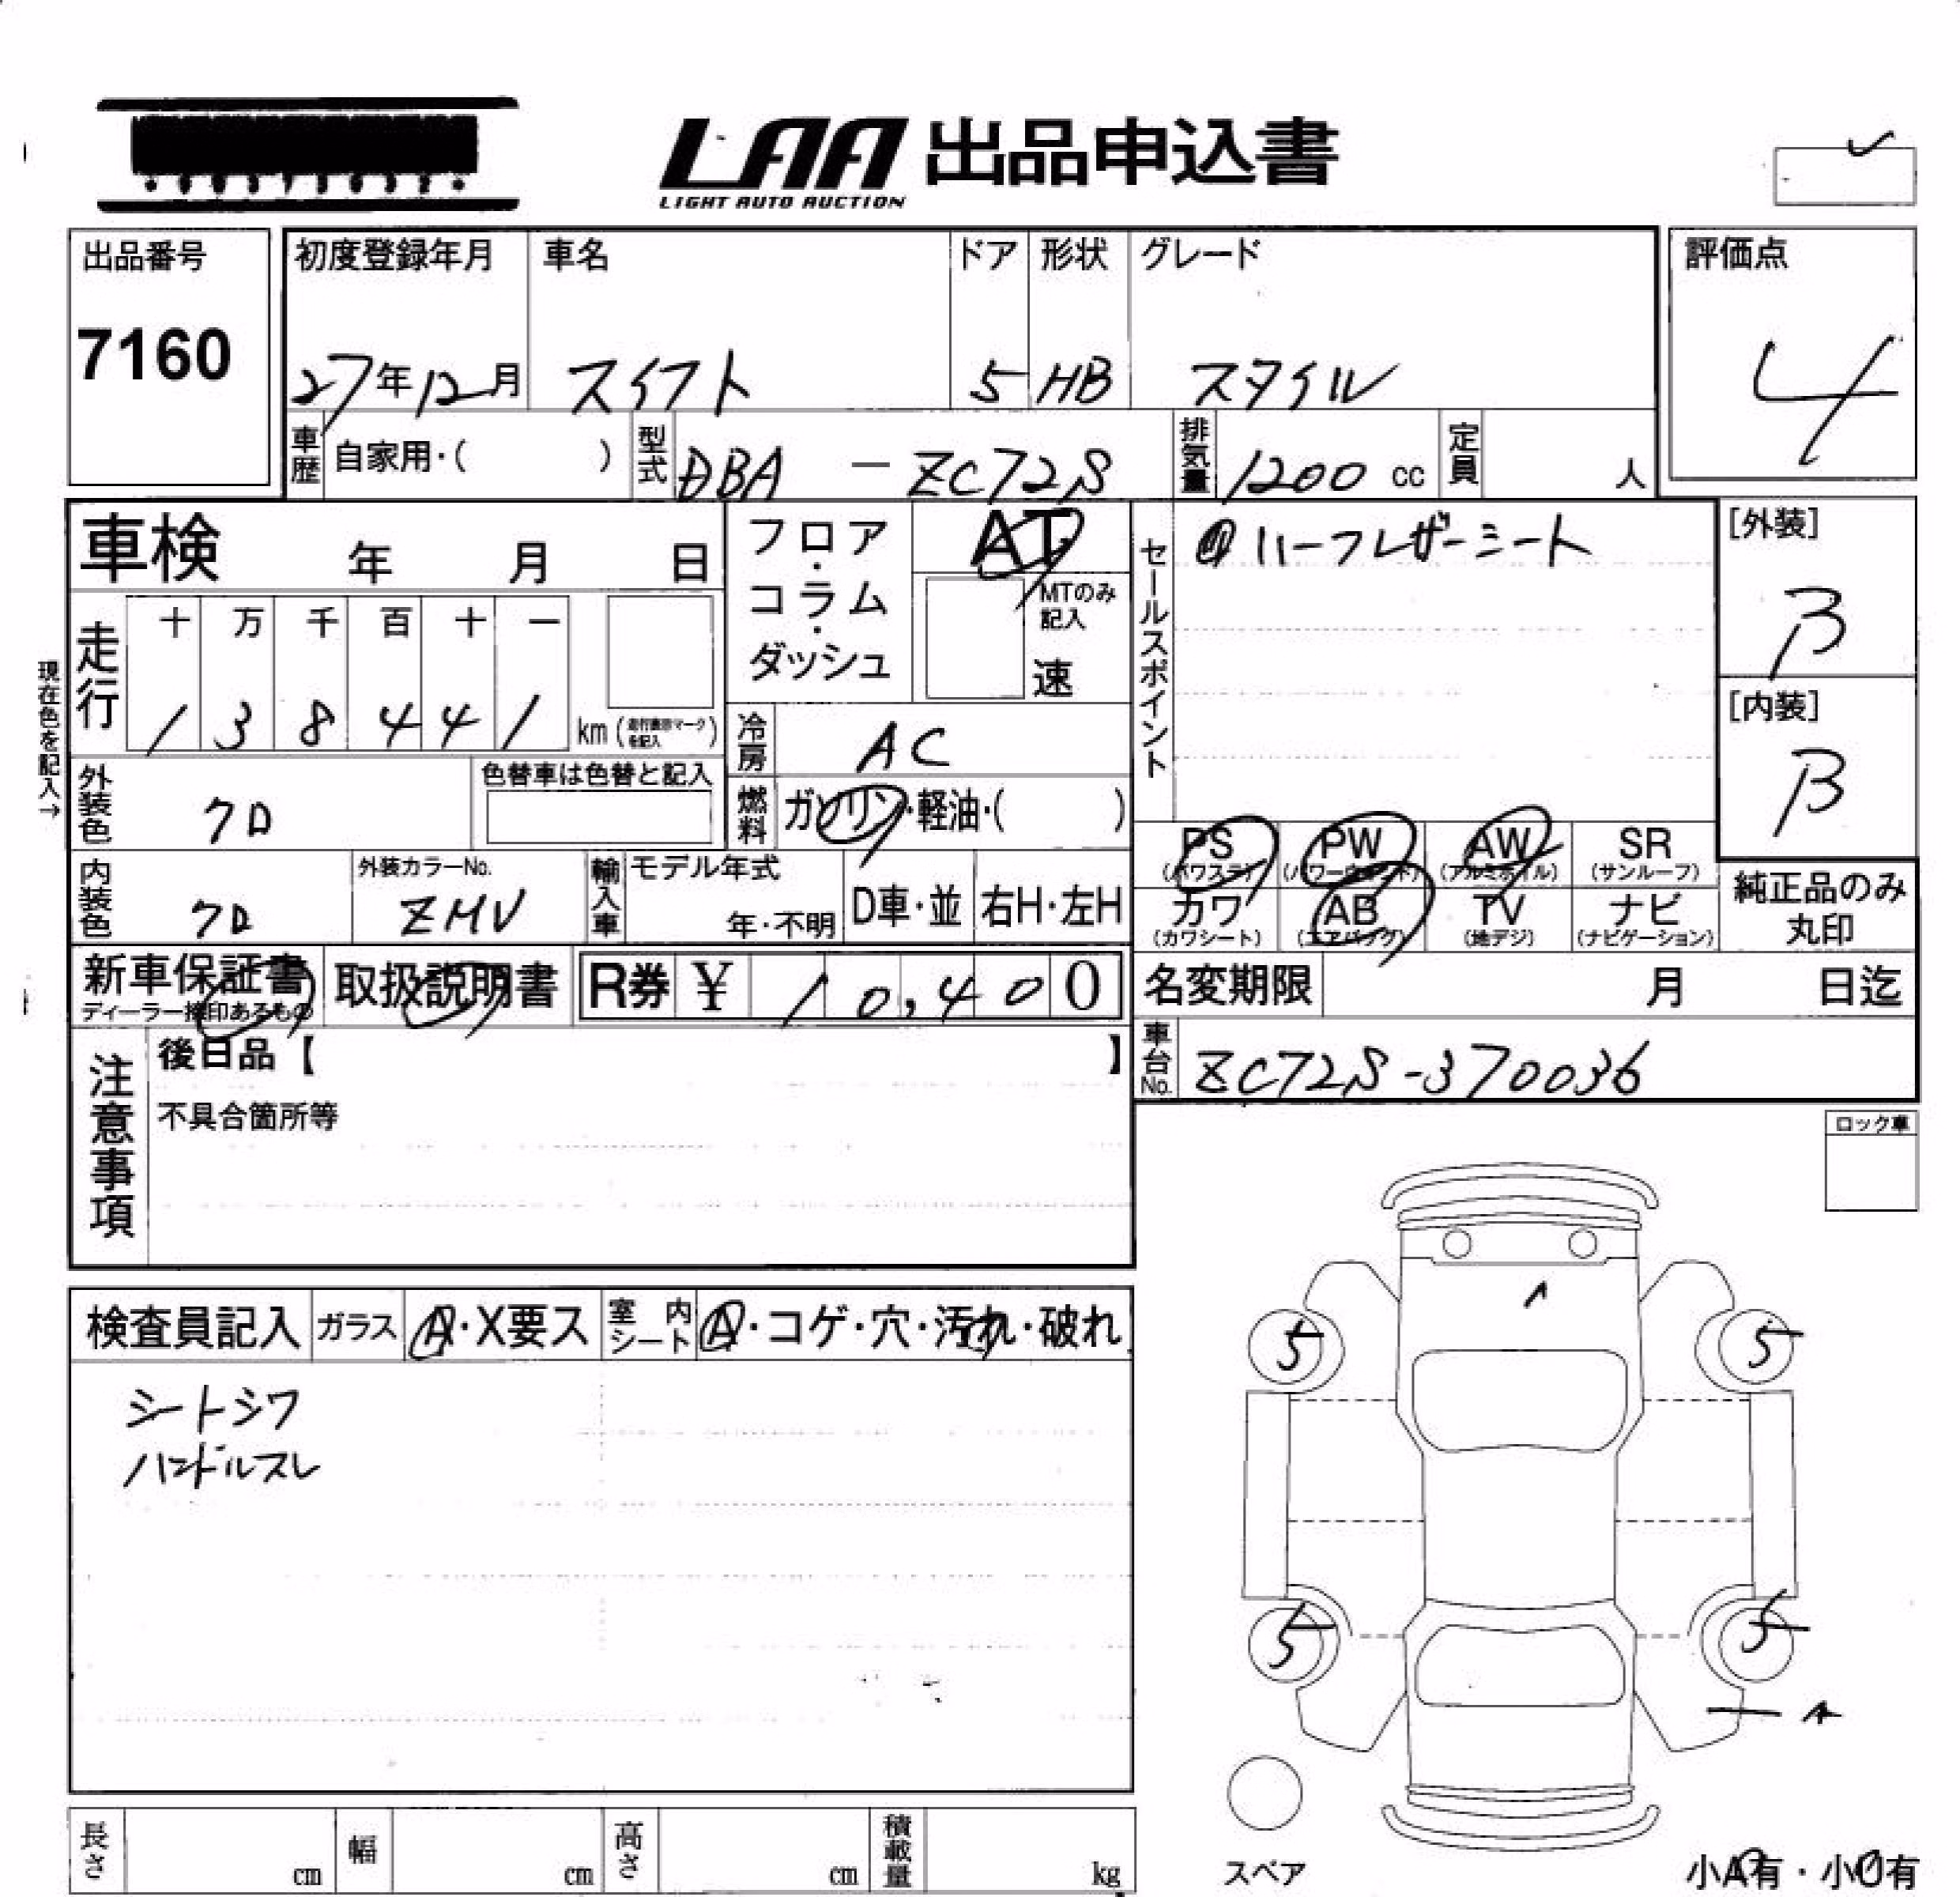 LAA 出品申込書
LIGHT AUTO AUCTION
出品番号
7160
初度登録年月
27年12月
車名
スイフト
ドア
5
形状
HB
グレード
スタイル
評価点
4
車歴
自家用・( )
型式
DBA - ZC72S
排気量
1200 cc
定員
人
車検 年 月 日
走行
十 万 千 百 十 一
1 3 8 4 4 1
km (走行表示マークを記入)
現在色を記入→
外装色
クロ
色替車は色替と記入
内装色
クロ
外装カラーNo.
ZMV
フロア・コラム・ダッシュ
AT
MTのみ記入
速
冷房
AC
燃料
ガソリン・軽油・( )
輸入車
モデル年式
年・不明
D車・並
右H・左H
セールスポイント
ハーフレザーシート
[外装]
B
[内装]
B
PS
(パワステ)
PW
(パワーウインド)
AW
(アルミホイル)
SR
(サンルーフ)
カワ
(カワシート)
AB
(エアバッグ)
TV
(地デジ)
ナビ
(ナビゲーション)
純正品のみ
丸印
新車保証書
ディーラー捺印あるもの
取扱説明書
R券 ¥ 10,400
名変期限 月 日迄
車台No.
ZC72S-370036
注意事項
後日品【 】
不具合箇所等
ロック車
検査員記入
ガラス
A・X要ス
室内シート
A・コゲ・穴・汚れ・破れ
シートシワ
ハンドルスレ
5 5
5 5
スペア
小A有・小U有
長さ cm
幅 cm
高さ cm
積載量 kg